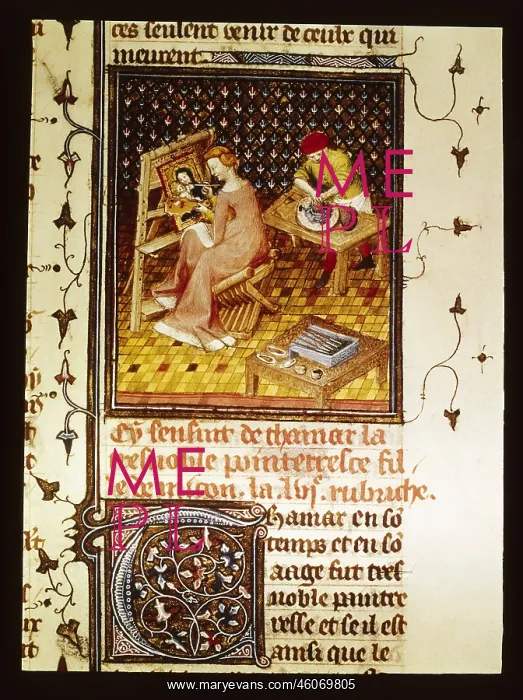 ces seulent venir de ceulx qui
meurent.
ME
PL
Cy sensuit de thamar la
tresnoble pointerresse fil
le de micon. la .lvi. rubriche.
ME
PL
Thamar en so
temps et en so
aage fut tres
noble paintre
resse et se il est
ainsi que le
www.maryevans.com/46069805